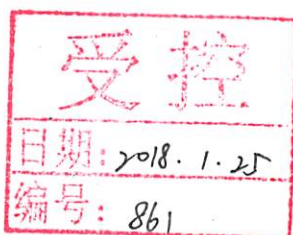 受控
日期：2018.1.25
编号：861